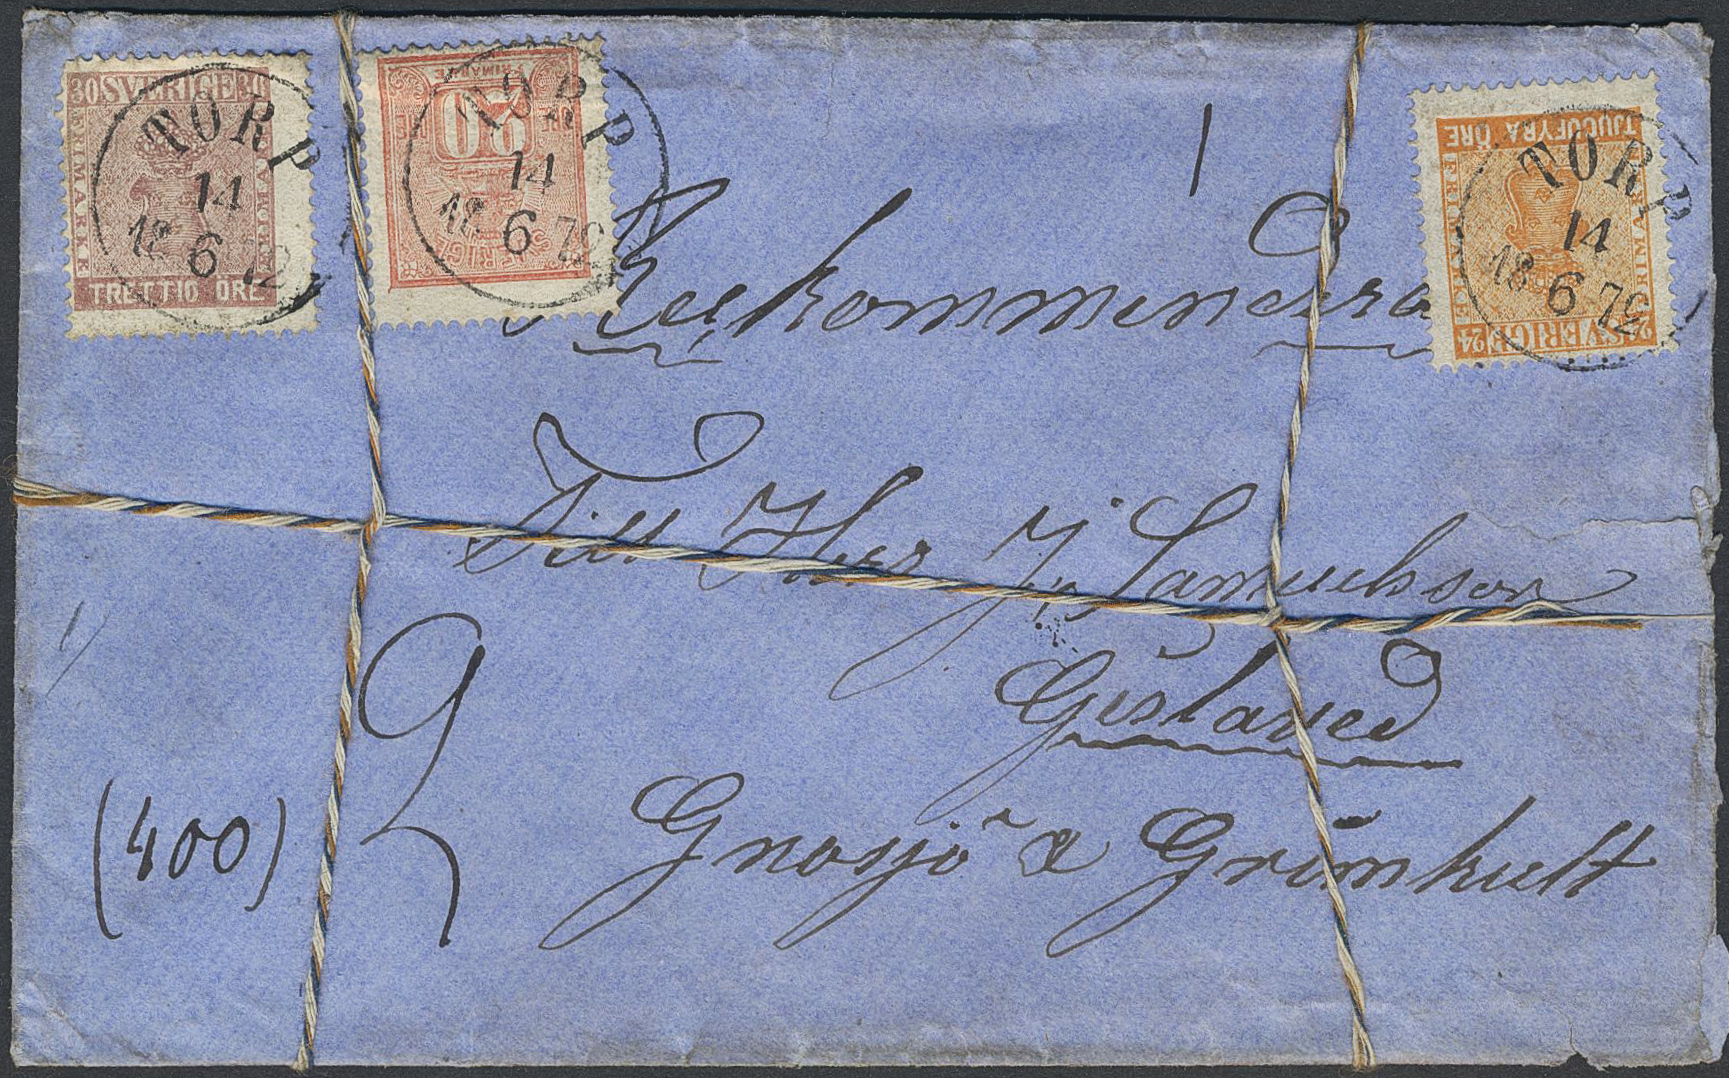 30 SVERIGE 30
FRIMÄRKE
TRETTIO ÖRE
TORP
14
18 6 72
20
FRIMÄRKE
SVERIGE
TORP
14
18 6 72
TJUGUFYRA ÖRE
FRIMÄRKE
FRIMÄRKE
24 SVERIGE 24
TORP
14
18 6 72
1
Reekommendera
Till Herr J Samuelsson
Gislaved
Gnosjö a Grimhult
(400)